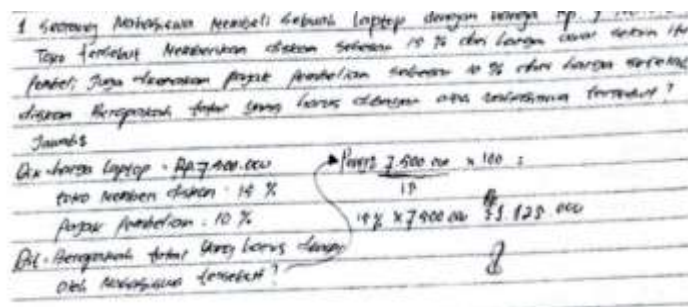 1 Seorang Mahasiswa Membeli Sebuah laptop dengan harga Rp. 7
Toko tersebut Memberikan diskon sebesar 15 % dari harga awal selain itu
pembeli Juga dikenakan pajak pembelian sebesar 10 % dari harga setelah
diskon Berapakah total yang harus dibayar oleh mahasiswa tersebut?
Jawab
Dik harga laptop = Rp 7.500.000
toko memberi diskon = 15 %
pajak pembelian = 10 %
Dit = Berapakah total yang harus
oleh Mahasiswa tersebut?
7.500.000 x 100 =
15
15 % x 7.500.000 1.125.000